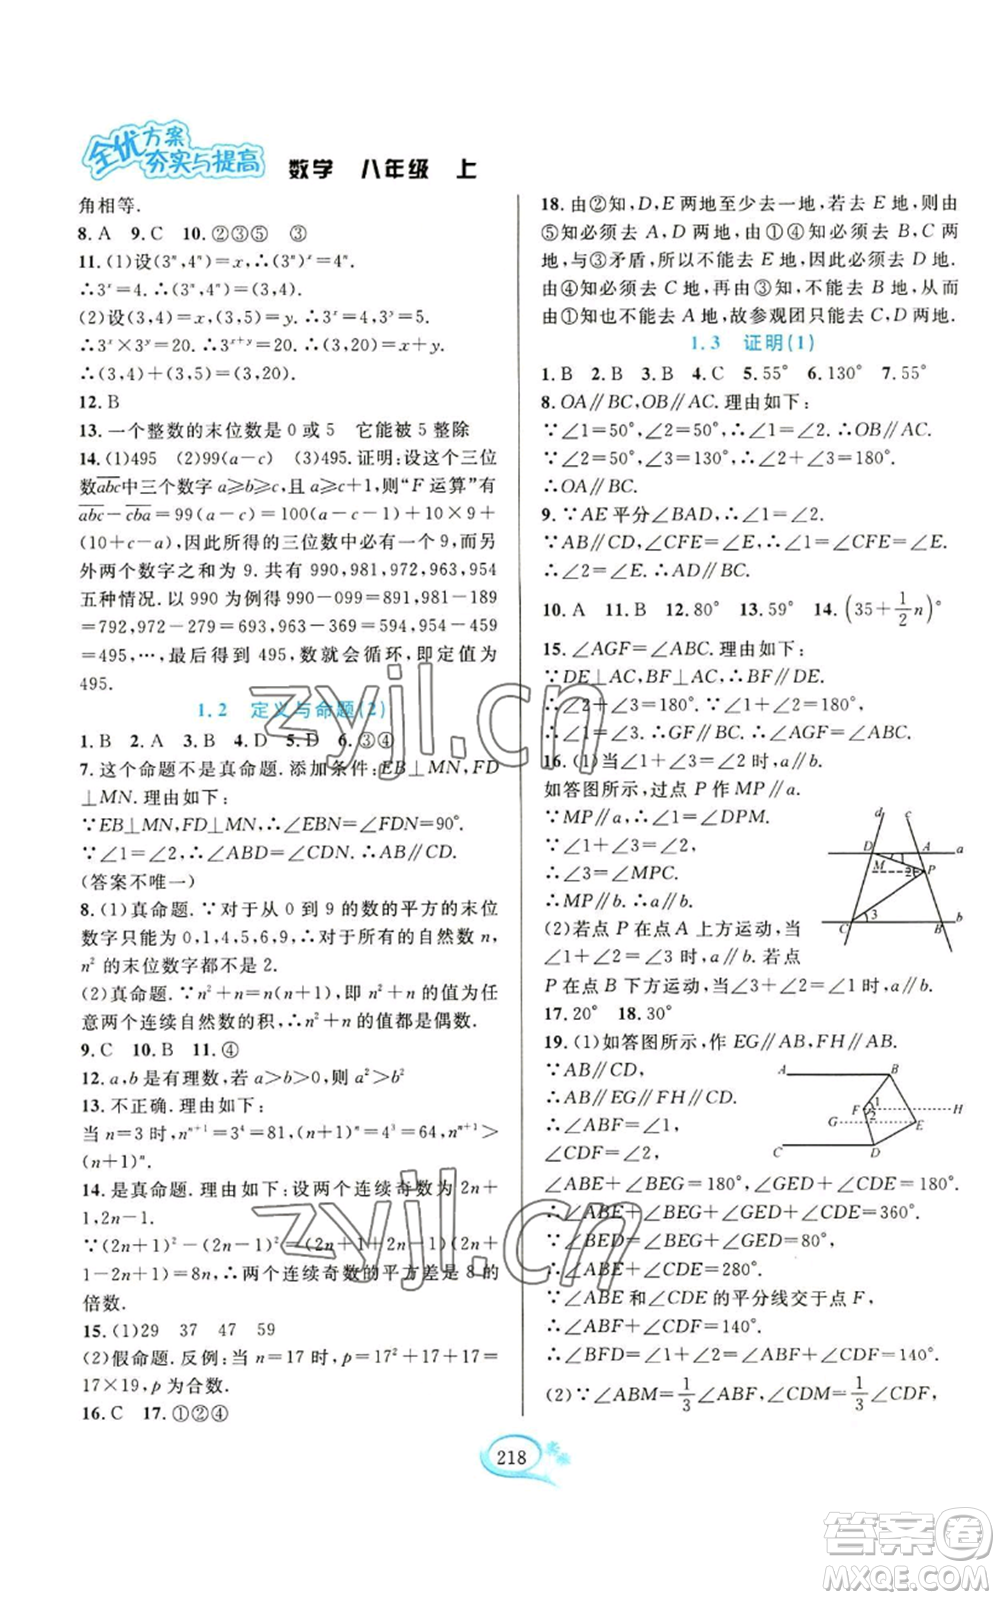 全优方案
夯实与提高
数学 八年级 上
角相等.
8. A 9. C 10. ②③⑤ ③
11. (1)设(3ⁿ,4ⁿ)=x,∴(3ⁿ)ˣ=4ⁿ.
∴3ˣ=4.∴(3,4)=(3ⁿ,4ⁿ).
(2)设(3,4)=x,(3,5)=y.∴3ˣ=4,3ʸ=5.
∴3ˣ×3ʸ=20.∴3ˣ⁺ʸ=20.∴(3,20)=x+y.
∴(3,4)+(3,5)=(3,20).
12. B
13. 一个整数的末位数是 0 或 5 它能被 5 整除
14. (1)495 (2)99(a-c) (3)495.证明:设这个三位
数a̅b̅c̅中三个数字 a≥b≥c,且 a≥c+1,则“F 运算”有
a̅b̅c̅-c̅b̅a̅=99(a-c)=100(a-c-1)+10×9+
(10+c-a),因此所得的三位数中必有一个 9,而另
外两个数字之和为 9.共有 990,981,972,963,954
五种情况.以 990 为例得 990-099=891,981-189
=792,972-279=693,963-369=594,954-459
=495,…,最后得到 495,数就会循环,即定值为
495.
1.2 定义与命题(2)
1. B 2. A 3. B 4. D 5. D 6. ③④
7. 这个命题不是真命题.添加条件:EB⊥MN,FD
⊥MN.理由如下:
∵EB⊥MN,FD⊥MN,∴∠EBN=∠FDN=90°.
∵∠1=∠2,∴∠ABD=∠CDN.∴AB∥CD.
(答案不唯一)
8. (1)真命题.∵对于从 0 到 9 的数的平方的末位
数字只能为 0,1,4,5,6,9,∴对于所有的自然数 n,
n²的末位数字都不是 2.
(2)真命题.∵n²+n=n(n+1),即 n²+n 的值为任
意两个连续自然数的积,∴n²+n 的值都是偶数.
9. C 10. B 11. ④
12. a,b 是有理数,若 a>b>0,则 a²>b²
13. 不正确.理由如下:
当 n=3 时,nⁿ⁺¹=3⁴=81,(n+1)ⁿ=4³=64,nⁿ⁺¹>
(n+1)ⁿ.
14. 是真命题.理由如下:设两个连续奇数为 2n+
1,2n-1.
∵(2n+1)²-(2n-1)²=(2n+1+2n-1)(2n+
1-2n+1)=8n,∴两个连续奇数的平方差是 8 的
倍数.
15. (1)29 37 47 59
(2)假命题.反例:当 n=17 时,p=17²+17+17=
17×19,p 为合数.
16. C 17. ①②④
18. 由②知,D,E 两地至少去一地,若去 E 地,则由
⑤知必须去 A,D 两地,由①④知必须去 B,C 两地,
这与③矛盾,所以不能去 E 地.因此必须去 D 地.
由④知必须去 C 地,再由③知,不能去 B 地,从而
由①知也不能去 A 地,故参观团只能去 C,D 两地.
1.3 证明(1)
1. B 2. B 3. B 4. C 5. 55° 6. 130° 7. 55°
8. OA∥BC,OB∥AC.理由如下:
∵∠1=50°,∠2=50°,∴∠1=∠2.∴OB∥AC.
∵∠2=50°,∠3=130°,∴∠2+∠3=180°.
∴OA∥BC.
9. ∵AE 平分∠BAD,∴∠1=∠2.
∵AB∥CD,∠CFE=∠E,∴∠1=∠CFE=∠E.
∴∠2=∠E.∴AD∥BC.
10. A 11. B 12. 80° 13. 59° 14. (35+1/2 n)°
15. ∠AGF=∠ABC.理由如下:
∵DE⊥AC,BF⊥AC,∴BF∥DE.
∴∠2+∠3=180°.∵∠1+∠2=180°,
∴∠1=∠3.∴GF∥BC.∴∠AGF=∠ABC.
16. (1)当∠2=∠1+∠3 时,a∥b.
如答图所示,过点 P 作 MP∥a.
∵MP∥a,∴∠1=∠DPM.
∵∠2=∠1+∠3,
∴∠3=∠MPC.
∴MP∥b.∴a∥b.
(2)若点 P 在点 A 上方运动,
当∠1+∠2=∠3 时,a∥b.若点
P 在点 B 下方运动,当∠3+∠2=∠1 时,a∥b.
d c
D 1 A a
M 2 P
C 3 B b
17. 20° 18. 30°
19. (1)如答图所示,作 EG∥AB,FH∥AB.
∵AB∥CD,
∴AB∥EG∥FH∥CD.
∴∠ABF=∠1,
∠CDF=∠2,
A B
F 1 2 H
G E
C D
∠ABE+∠BEG=180°,∠GED+∠CDE=180°.
∴∠ABE+∠BEG+∠GED+∠CDE=360°.
∵∠BED=∠BEG+∠GED=80°,
∴∠ABE+∠CDE=280°.
∵∠ABE 和∠CDE 的平分线交于点 F,
∴∠ABF+∠CDF=140°.
∴∠BFD=∠1+∠2=∠ABF+∠CDF=140°.
(2)∵∠ABM=1/3∠ABF,∠CDM=1/3∠CDF,
218
zyjl.cn
zyjl.cn
答案圈
MXQE.COM